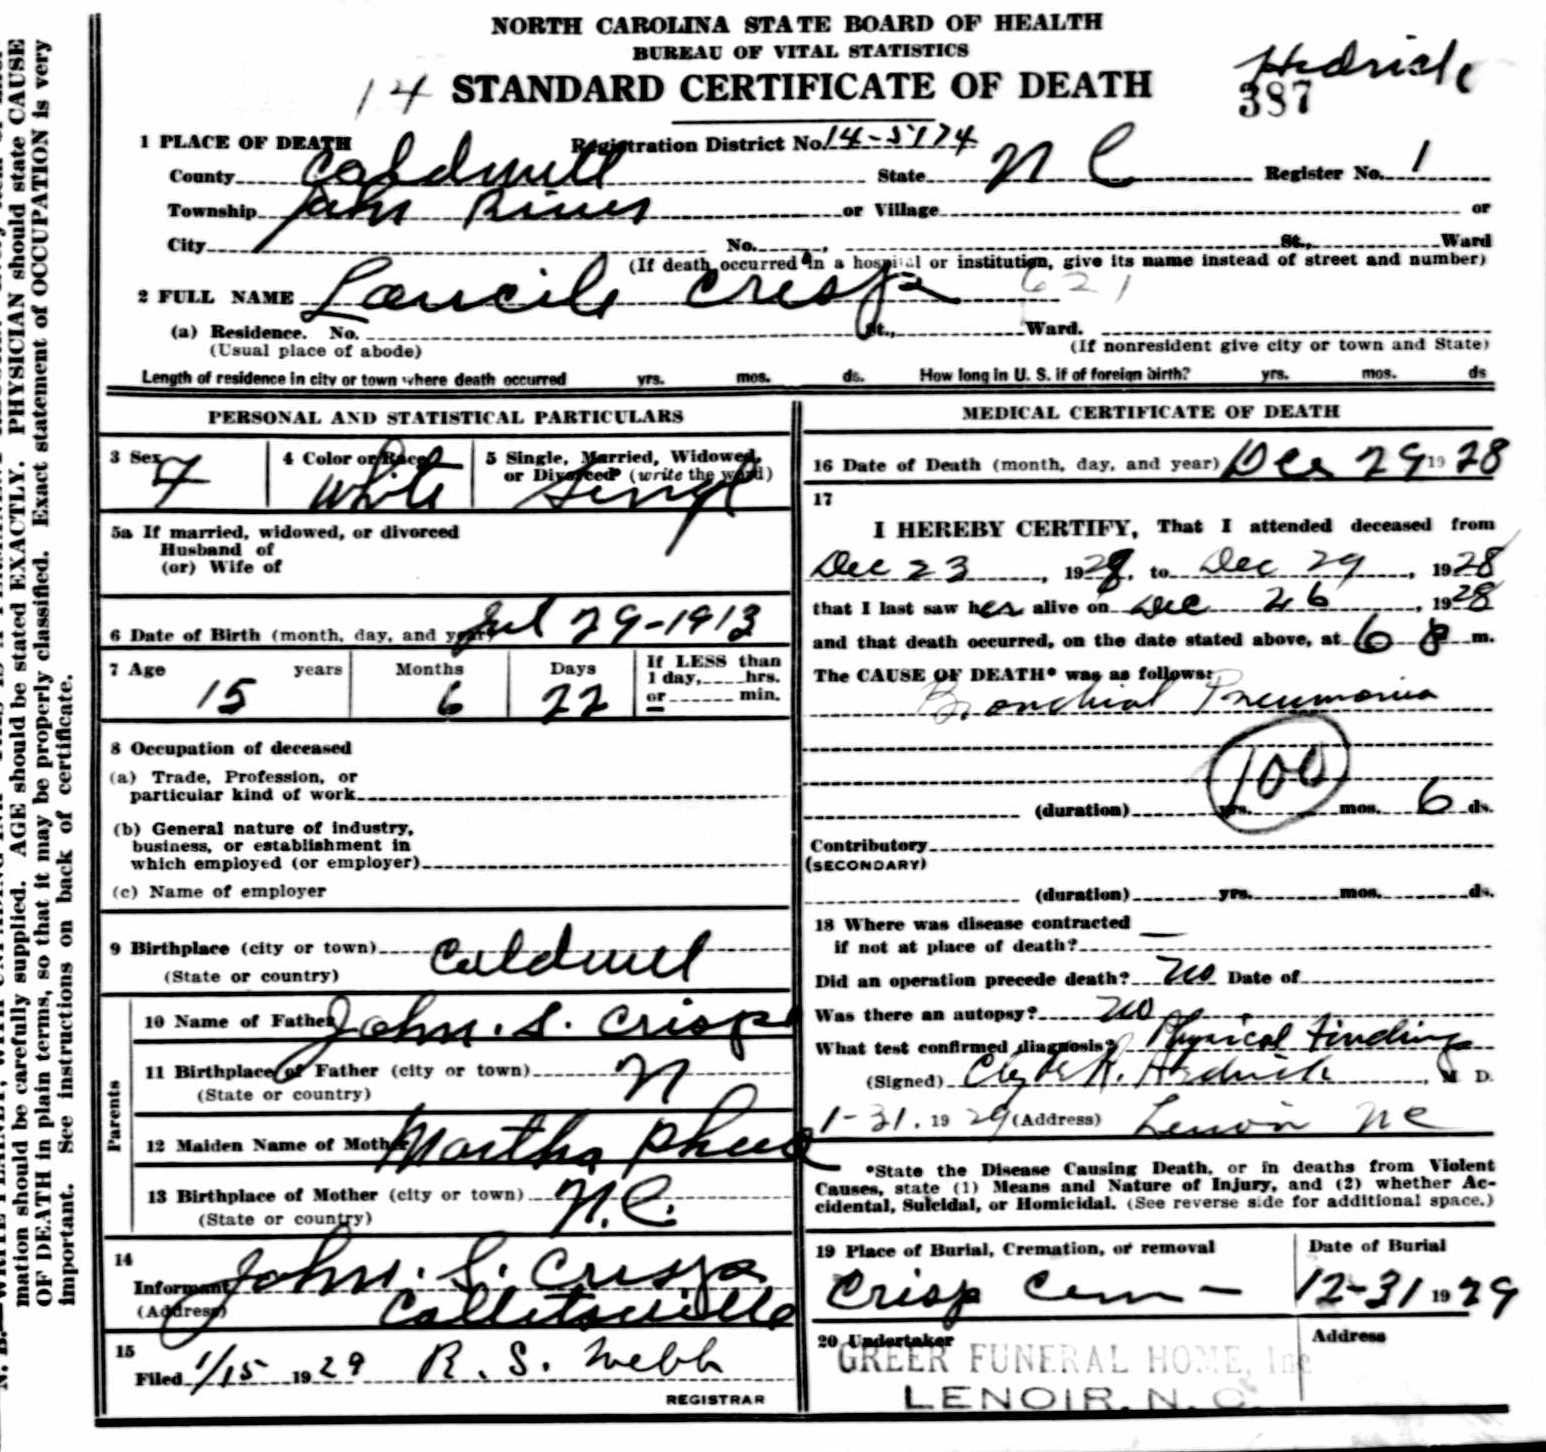 NORTH CAROLINA STATE BOARD OF HEALTH
BUREAU OF VITAL STATISTICS
14 STANDARD CERTIFICATE OF DEATH
Hedrick
387
1 PLACE OF DEATH Registration District No. 14-5174
County Caldwell State N C Register No. 1
Township Johns River or Village or
City No. , St., Ward
(If death occurred in a hospital or institution, give its name instead of street and number)
2 FULL NAME Crisp 621
(a) Residence. No. St., Ward.
(Usual place of abode) (If nonresident give city or town and State)
Length of residence in city or town where death occurred yrs. mos. ds. How long in U. S. if of foreign birth? yrs. mos. ds
PERSONAL AND STATISTICAL PARTICULARS
3 Sex F
4 Color or Race White
5 Single, Married, Widowed, or Divorced (write the word) Singl
5a If married, widowed, or divorced
Husband of
(or) Wife of
6 Date of Birth (month, day, and year) 29-1913
7 Age years Months Days If LESS than
1 day, hrs.
or min.
15 6 22
8 Occupation of deceased
(a) Trade, Profession, or
particular kind of work
(b) General nature of industry,
business, or establishment in
which employed (or employer)
(c) Name of employer
9 Birthplace (city or town) Caldwell
(State or country)
Parents
10 Name of Father John. S. Crisp
11 Birthplace of Father (city or town) N
(State or country)
12 Maiden Name of Mother Martha
13 Birthplace of Mother (city or town) N.C.
(State or country)
14
Informant John. S. Crisp
(Address) Collettsville
15
Filed 1/15 1929 R. S. Webb
REGISTRAR
MEDICAL CERTIFICATE OF DEATH
16 Date of Death (month, day, and year) Dec 29 1928
17
I HEREBY CERTIFY, That I attended deceased from
Dec 23, 1928, to Dec 29, 1928
that I last saw her alive on Dec 26, 1928
and that death occurred, on the date stated above, at 6 m.
The CAUSE OF DEATH* was as follows:
Bronchial Pneumonia
100
(duration) yrs. mos. 6 ds.
Contributory
(SECONDARY)
(duration) yrs. mos. ds.
18 Where was disease contracted
if not at place of death? —
Did an operation precede death? no Date of
Was there an autopsy? no
What test confirmed diagnosis? Physical Findings
(Signed) Clyde R. Hedrick, M D.
1-31. 1929 (Address) Lenoir NC
*State the Disease Causing Death, or in deaths from Violent
Causes, state (1) Means and Nature of Injury, and (2) whether Ac-
cidental, Suicidal, or Homicidal. (See reverse side for additional space.)
19 Place of Burial, Cremation, or removal Date of Burial
Crisp Cem — 12-31 1929
20 Undertaker Address
GREER FUNERAL HOME, Inc
LENOIR, N. C.
mation should be carefully supplied. AGE should be stated EXACTLY. PHYSICIAN should state CAUSE
OF DEATH in plain terms, so that it may be properly classified. Exact statement of OCCUPATION is very
important. See instructions on back of certificate.